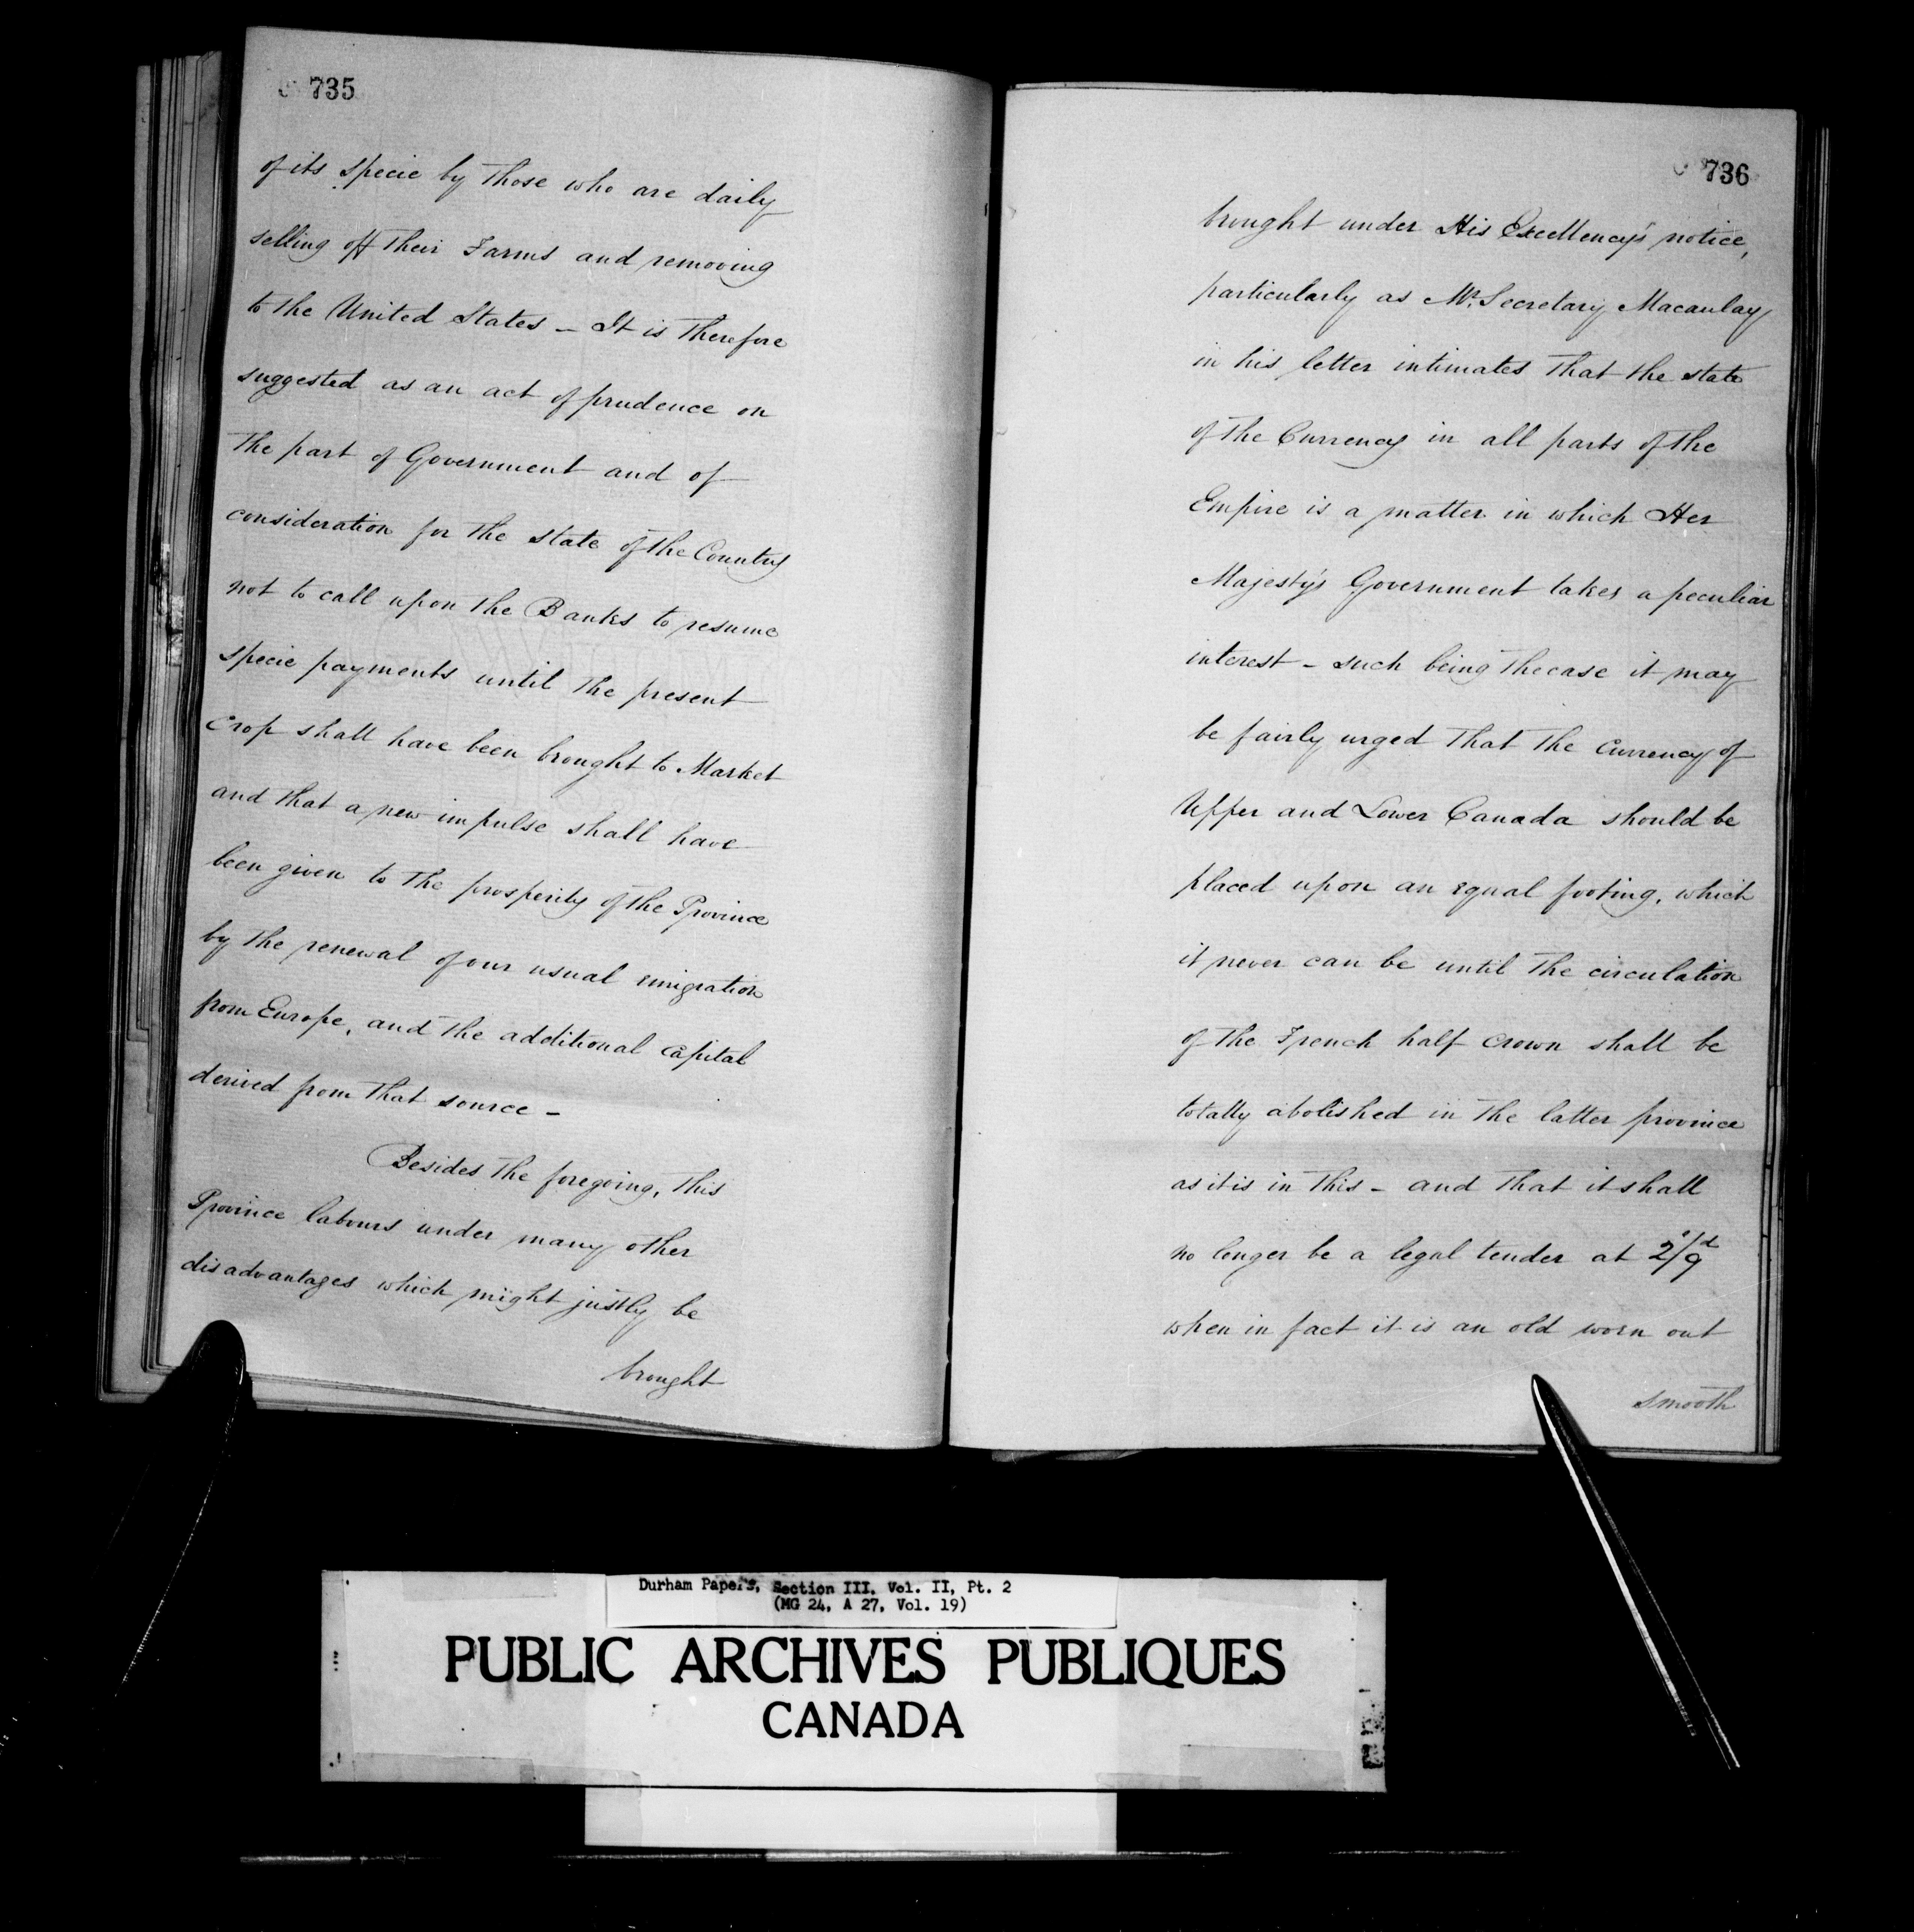 735
of its specie by those who are daily
selling off their Farms and removing
to the United States – It is therefore
suggested as an act of prudence on
the part of Government and of
consideration for the state of the Country
not to call upon the Banks to resume
specie payments until the present
Crop shall have been brought to Market
and that a new impulse shall have
been given to the prosperity of the Province
by the renewal of our usual emigration
from Europe, and the additional capital
derived from that source –
Besides the foregoing, this
Province labours under many other
disadvantages which might justly be
brought
736
brought under His Excellency's notice,
particularly as Mr. Secretary Macaulay
in his letter intimates that the state
of the Currency in all parts of the
Empire is a matter in which Her
Majesty's Government takes a peculiar
interest – such being the case it may
be fairly urged that the Currency of
Upper and Lower Canada should be
placed upon an equal footing, which
it never can be until the circulation
of the French half crown shall be
totally abolished in the latter province
as it is in this – and that it shall
no longer be a legal tender at 2s/9d
when in fact it is an old worn out
smooth
Durham Papers, Section III, Vol. II, Pt. 2
(MG 24, A 27, Vol. 19)
PUBLIC ARCHIVES PUBLIQUES
CANADA